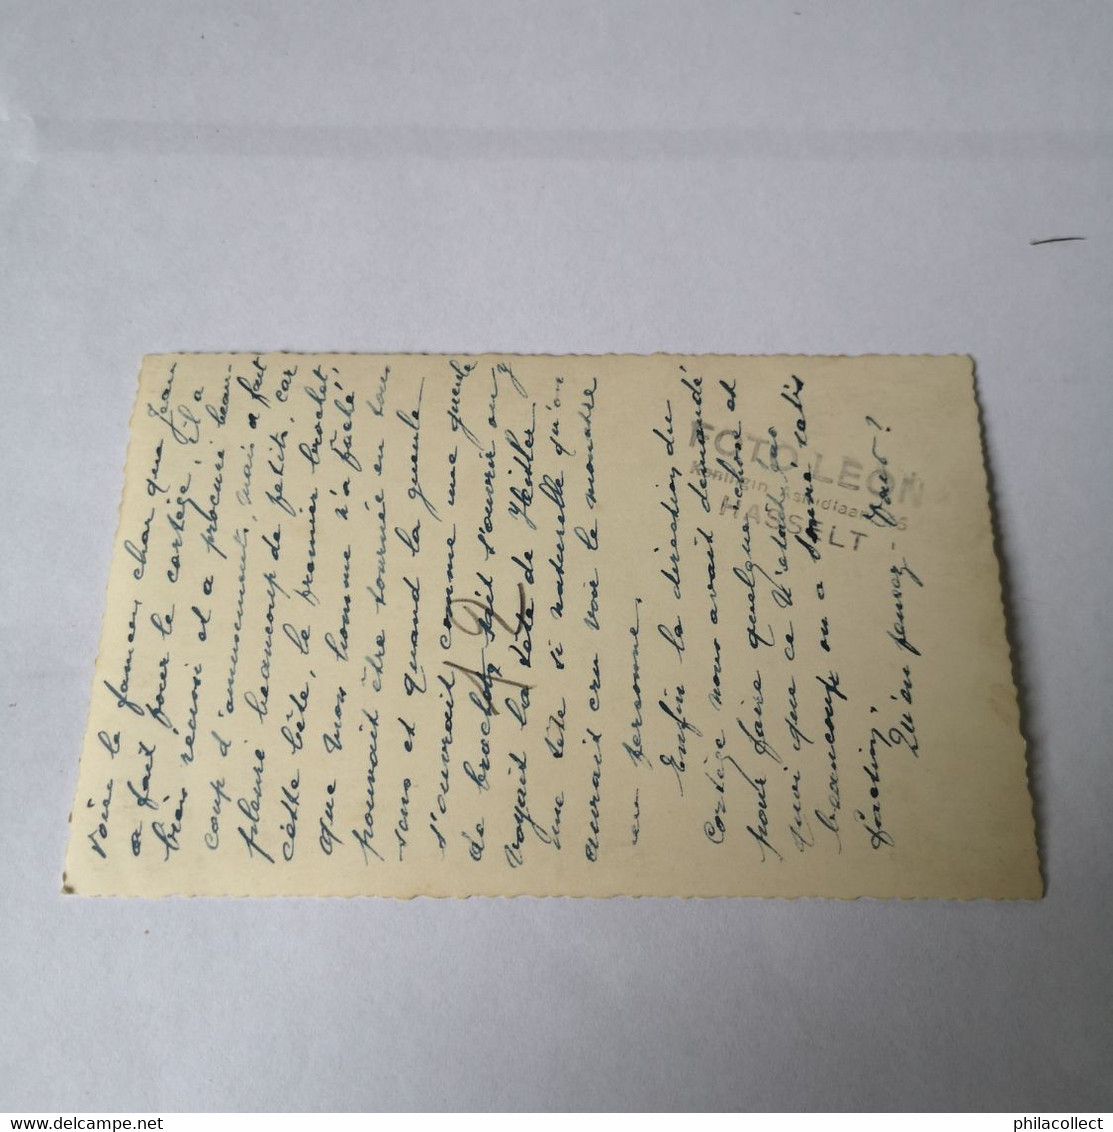 Voici le fameux char que Jean
a fait pour le cortège. Il a
bien réussi et a procuré beau-
coup d'amusements, mais a fait
pleurer beaucoup de petits, car
cette bête, le premier brochet
que mon homme n'a fâché,
pouvait être tourné en tous
sens et quand la gueule
s'ouvrait comme une gueule
de brochet sait s'ouvrir on y
voyait la tête de Hitler
une tête si naturelle qu'on
aurait cru voir le monstre
en personne.
Enfin la direction du
cortège nous avait demandé
pour faire quelque chose et
quoi que ce n'était pas
beaucoup on a donné satis
faction.
Qu'en pensez-vous?
12
FOTO LEON
Koningin Astridlaan
HASSELT
philacollect